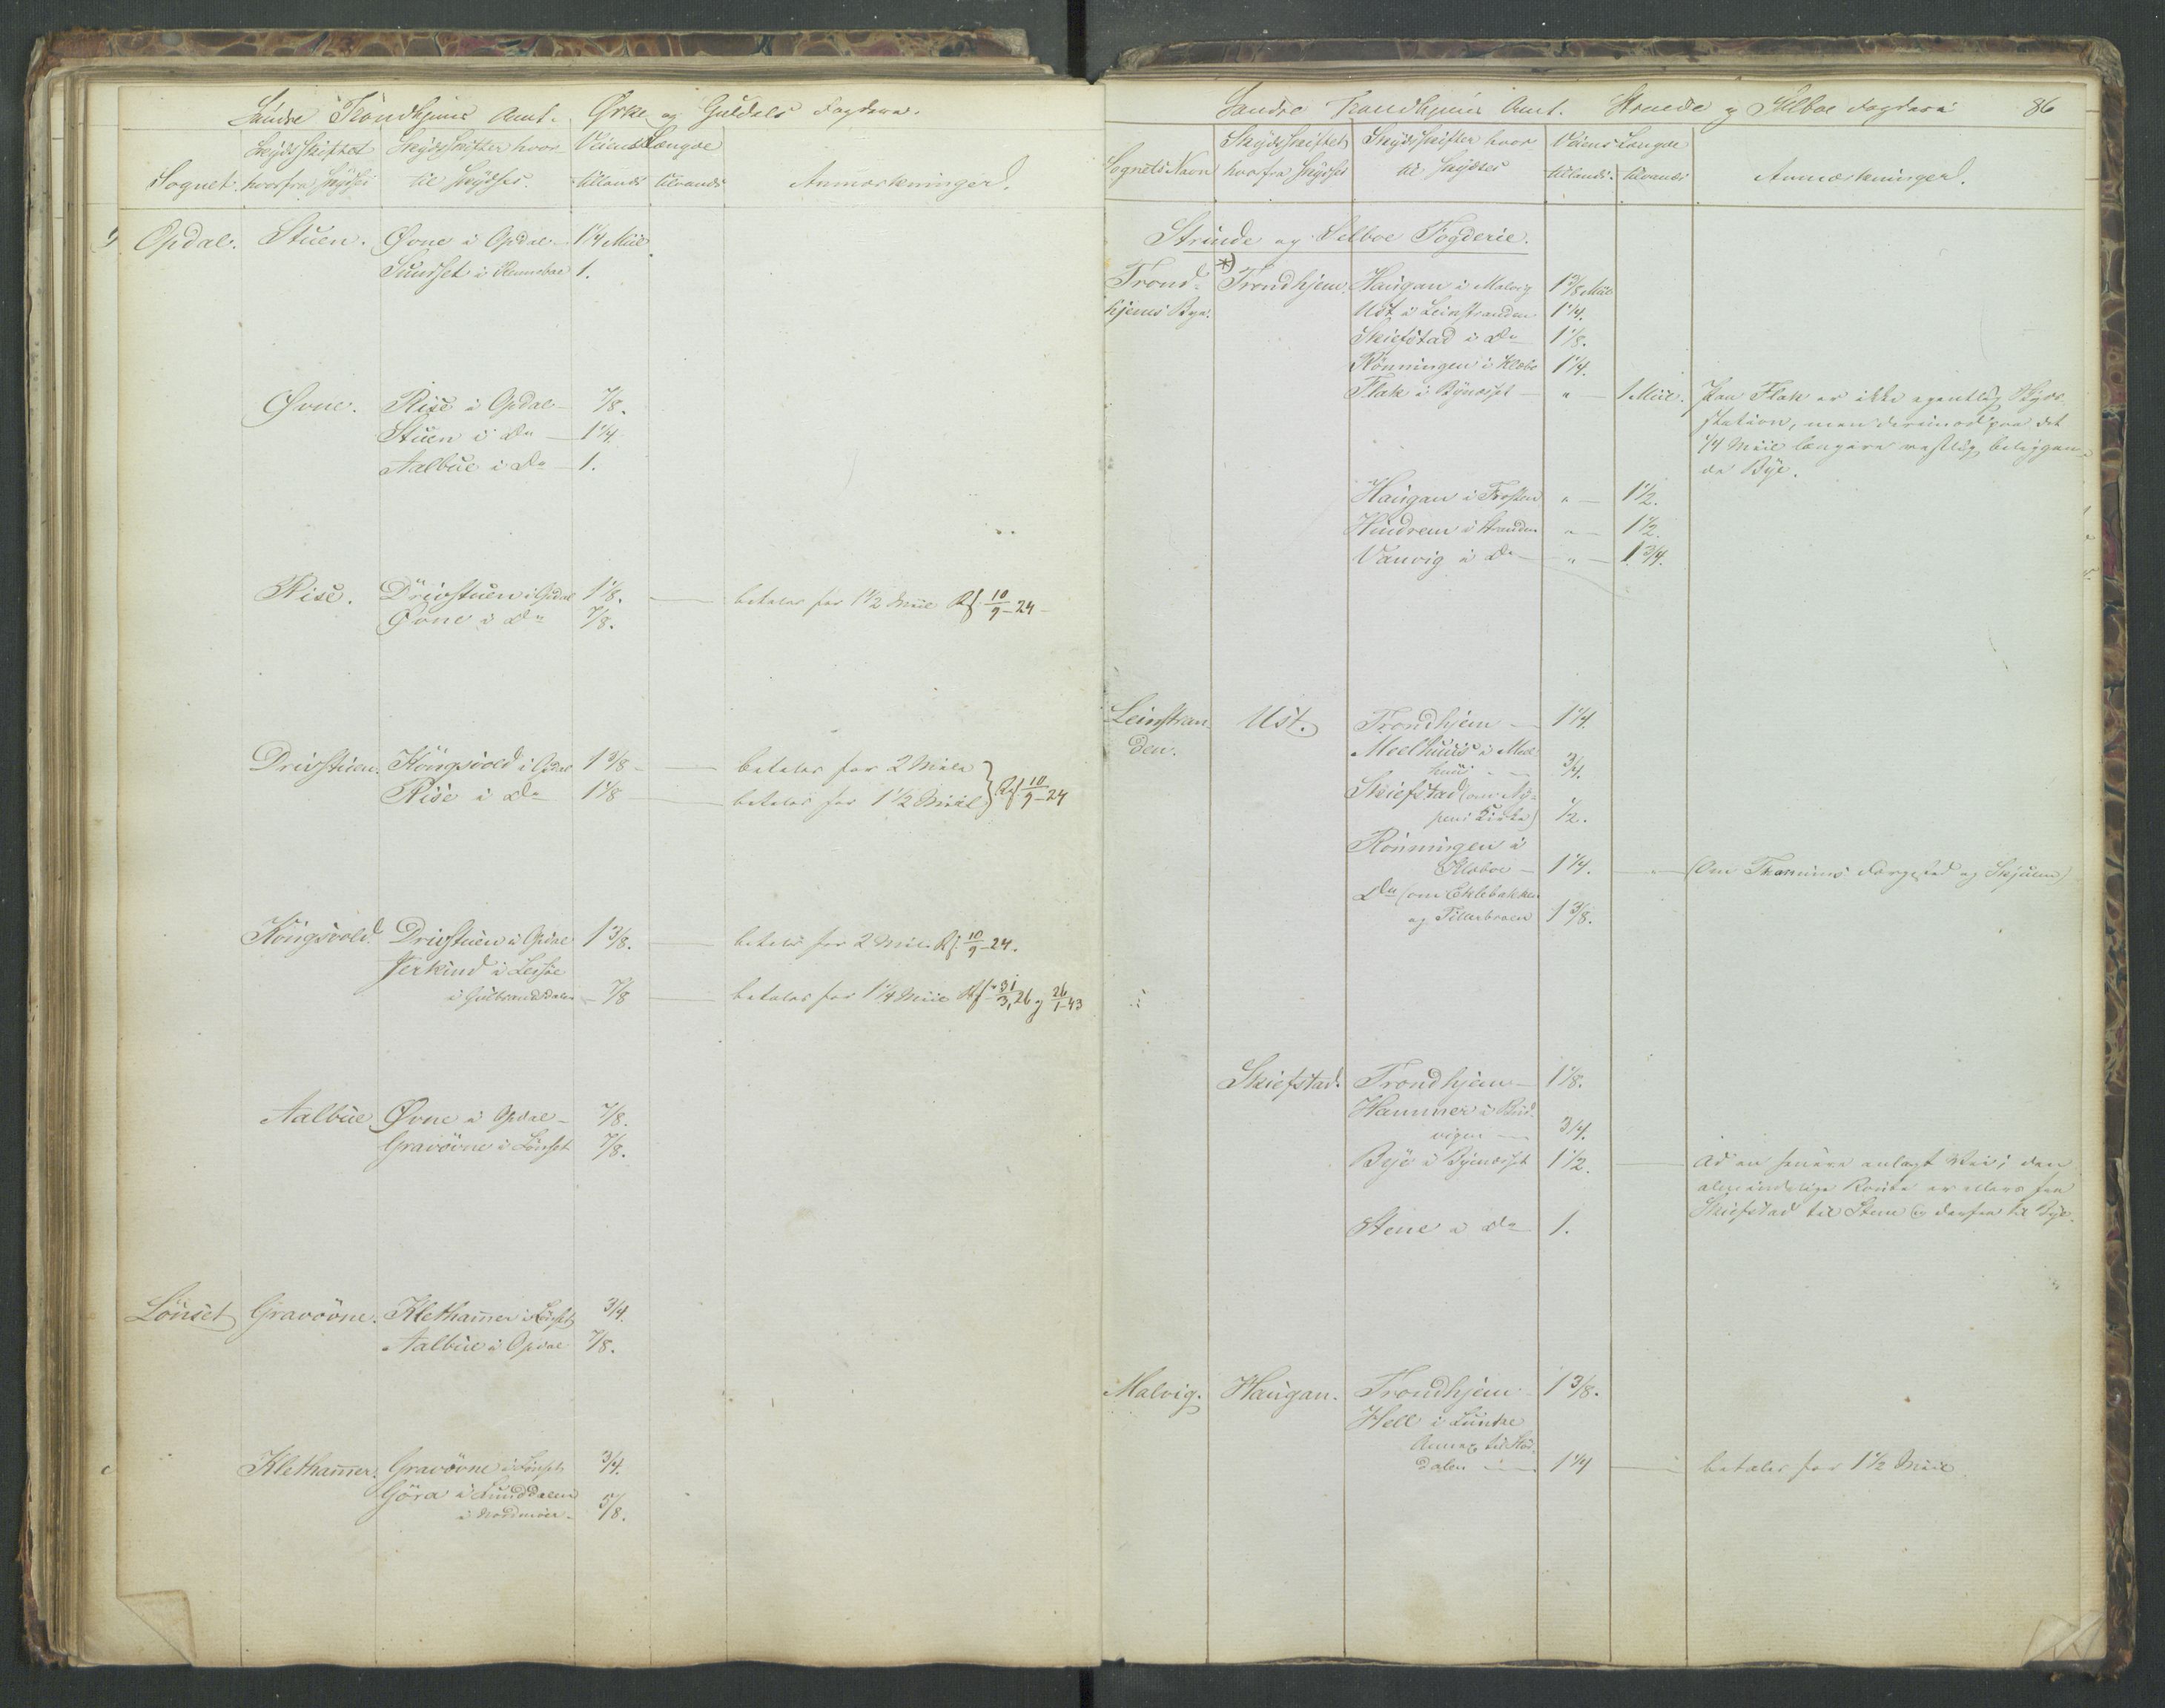 Söndre Trondhjems Amt. Ørke og Guldals Fogderie.
Sognet. Skydsskiftet hvorfra skydses Skydsskifter hvor til skydses. Veiens Længde tillands tilvands Anmærkninger.
Opdal. Stuen. Øvne i Opdal 1 1/4 Miil.
Sundset i Renneboe 1.
Øvne. Rise i Opdal 7/8.
Stuen i Do 1 1/4.
Aalbue i Do 1.
Rise. Drivstuen i Opdal 1 1/8. betales for 1 1/2 Miil Rf. 10/9-24
Øvne i Do 7/8.
Drivstuen. Kongsvold i Opdal 1 3/8 betales for 2 Mile
Rise i Do 1 1/8 betales for 1 1/2 Miil } Rf. 10/9-24
Kongsvold. Drivstuen i Opdal 1 3/8. betales for 2 Mile Rf. 10/9-24.
Jerkind i Lessøe
i Gulbrandsdalen 7/8 betales for 1 1/4 Miil Rf. 31/3,26 og 26/1-43
Aalbue. Øvne i Opdal 7/8.
Gravövne i Lönset 7/8.
Lönset Gravövne. Klethamer i Lönset 3/4.
Aalbue i Opdal 7/8.
Klethamer. Gravövne i Lönset 3/4.
Göra i Sunddalen
i Nordmöer 5/8.
Söndre Trondhjems Amt. Strinde og Selboe Fogderie 86
Sognets Navn Skydsskiftet hvorfra skydses Skydsskifter hvor til skydses Veiens Længde tillands. tilvands Anmærkninger.
Strinde og Selboe Fogderie.
Trond- *) Trondhjem. Haugan i Malvig 1 3/8 Miil
hjems Bye. Ust i Leinstranden 1 1/4.
Skiefstad i Do 1 1/8.
Rönningen i Klæbo 1 1/4.
Flak i Bynæsset " 1 Miil. Paa Flak er ikke egentlig Skyds-
station, men derimod paa det
1/4 Miil længere vestlig beliggen-
de Bye.
Haugan i Frosten " 1 1/2.
Hindrem i Stranden " 1 1/2.
Vanvig i Do " 1 3/4.
Leinstran- Ust. Trondhjem 1 1/4.
den. Meelhuus i Meel-
huus 3/4.
Skiefstad (om Ny-
peni Kirke) 1/2.
Rönningen i
Klæboe 1 1/4. (Om Thomins Færgested og Skjulen)
Do (om Eklebakken
og Tillerbroen 1 3/8.
Skiefstad. Trondhjem 1 1/8.
Hammer i Bud-
vigen 3/4.
Bye i Bynæsset 1 1/2. Ad en senere anlagt Vei; den
almindelige Route er ellers fra
Skiefstad til Stene og derfra til Bye.
Stene i Do 1.
Malvig. Haugan. Trondhjem 1 3/8.
Hell i Lunke
Annex til Stör-
dalen 1 1/4 betales for 1 1/2 Miil